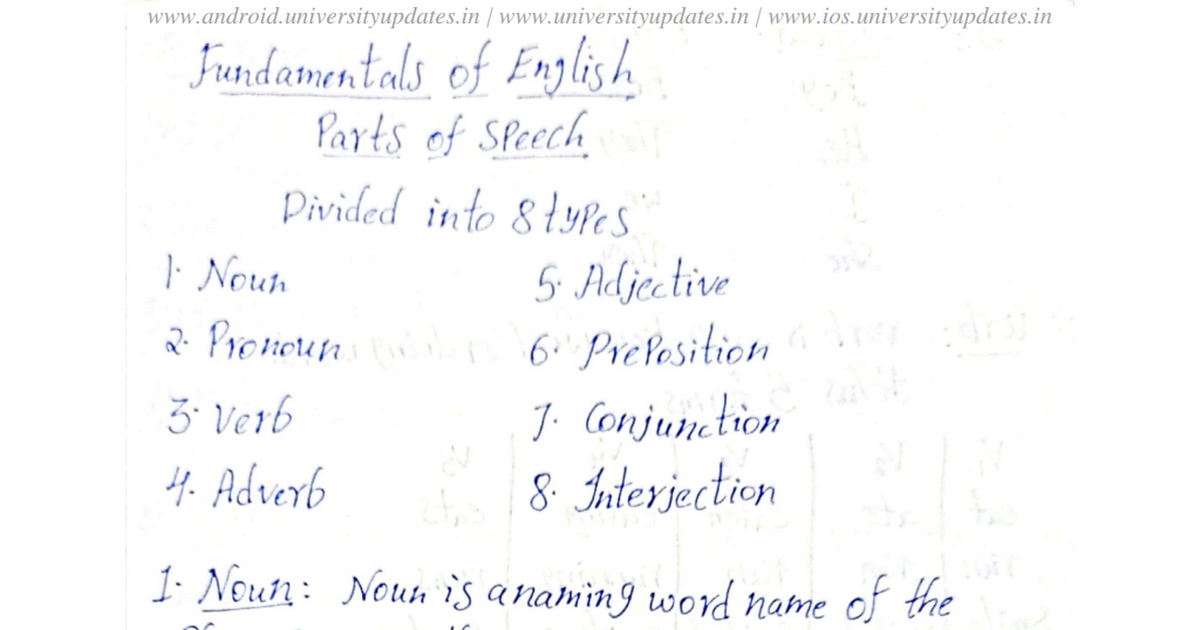 www.android.universityupdates.in | www.universityupdates.in | www.ios.universityupdates.in
Fundamentals of English
Parts of Speech
Divided into 8 types
1. Noun
2. Pronoun
3. Verb
4. Adverb
5. Adjective
6. Preposition
7. Conjunction
8. Interjection
1. Noun: Noun is a naming word name of the